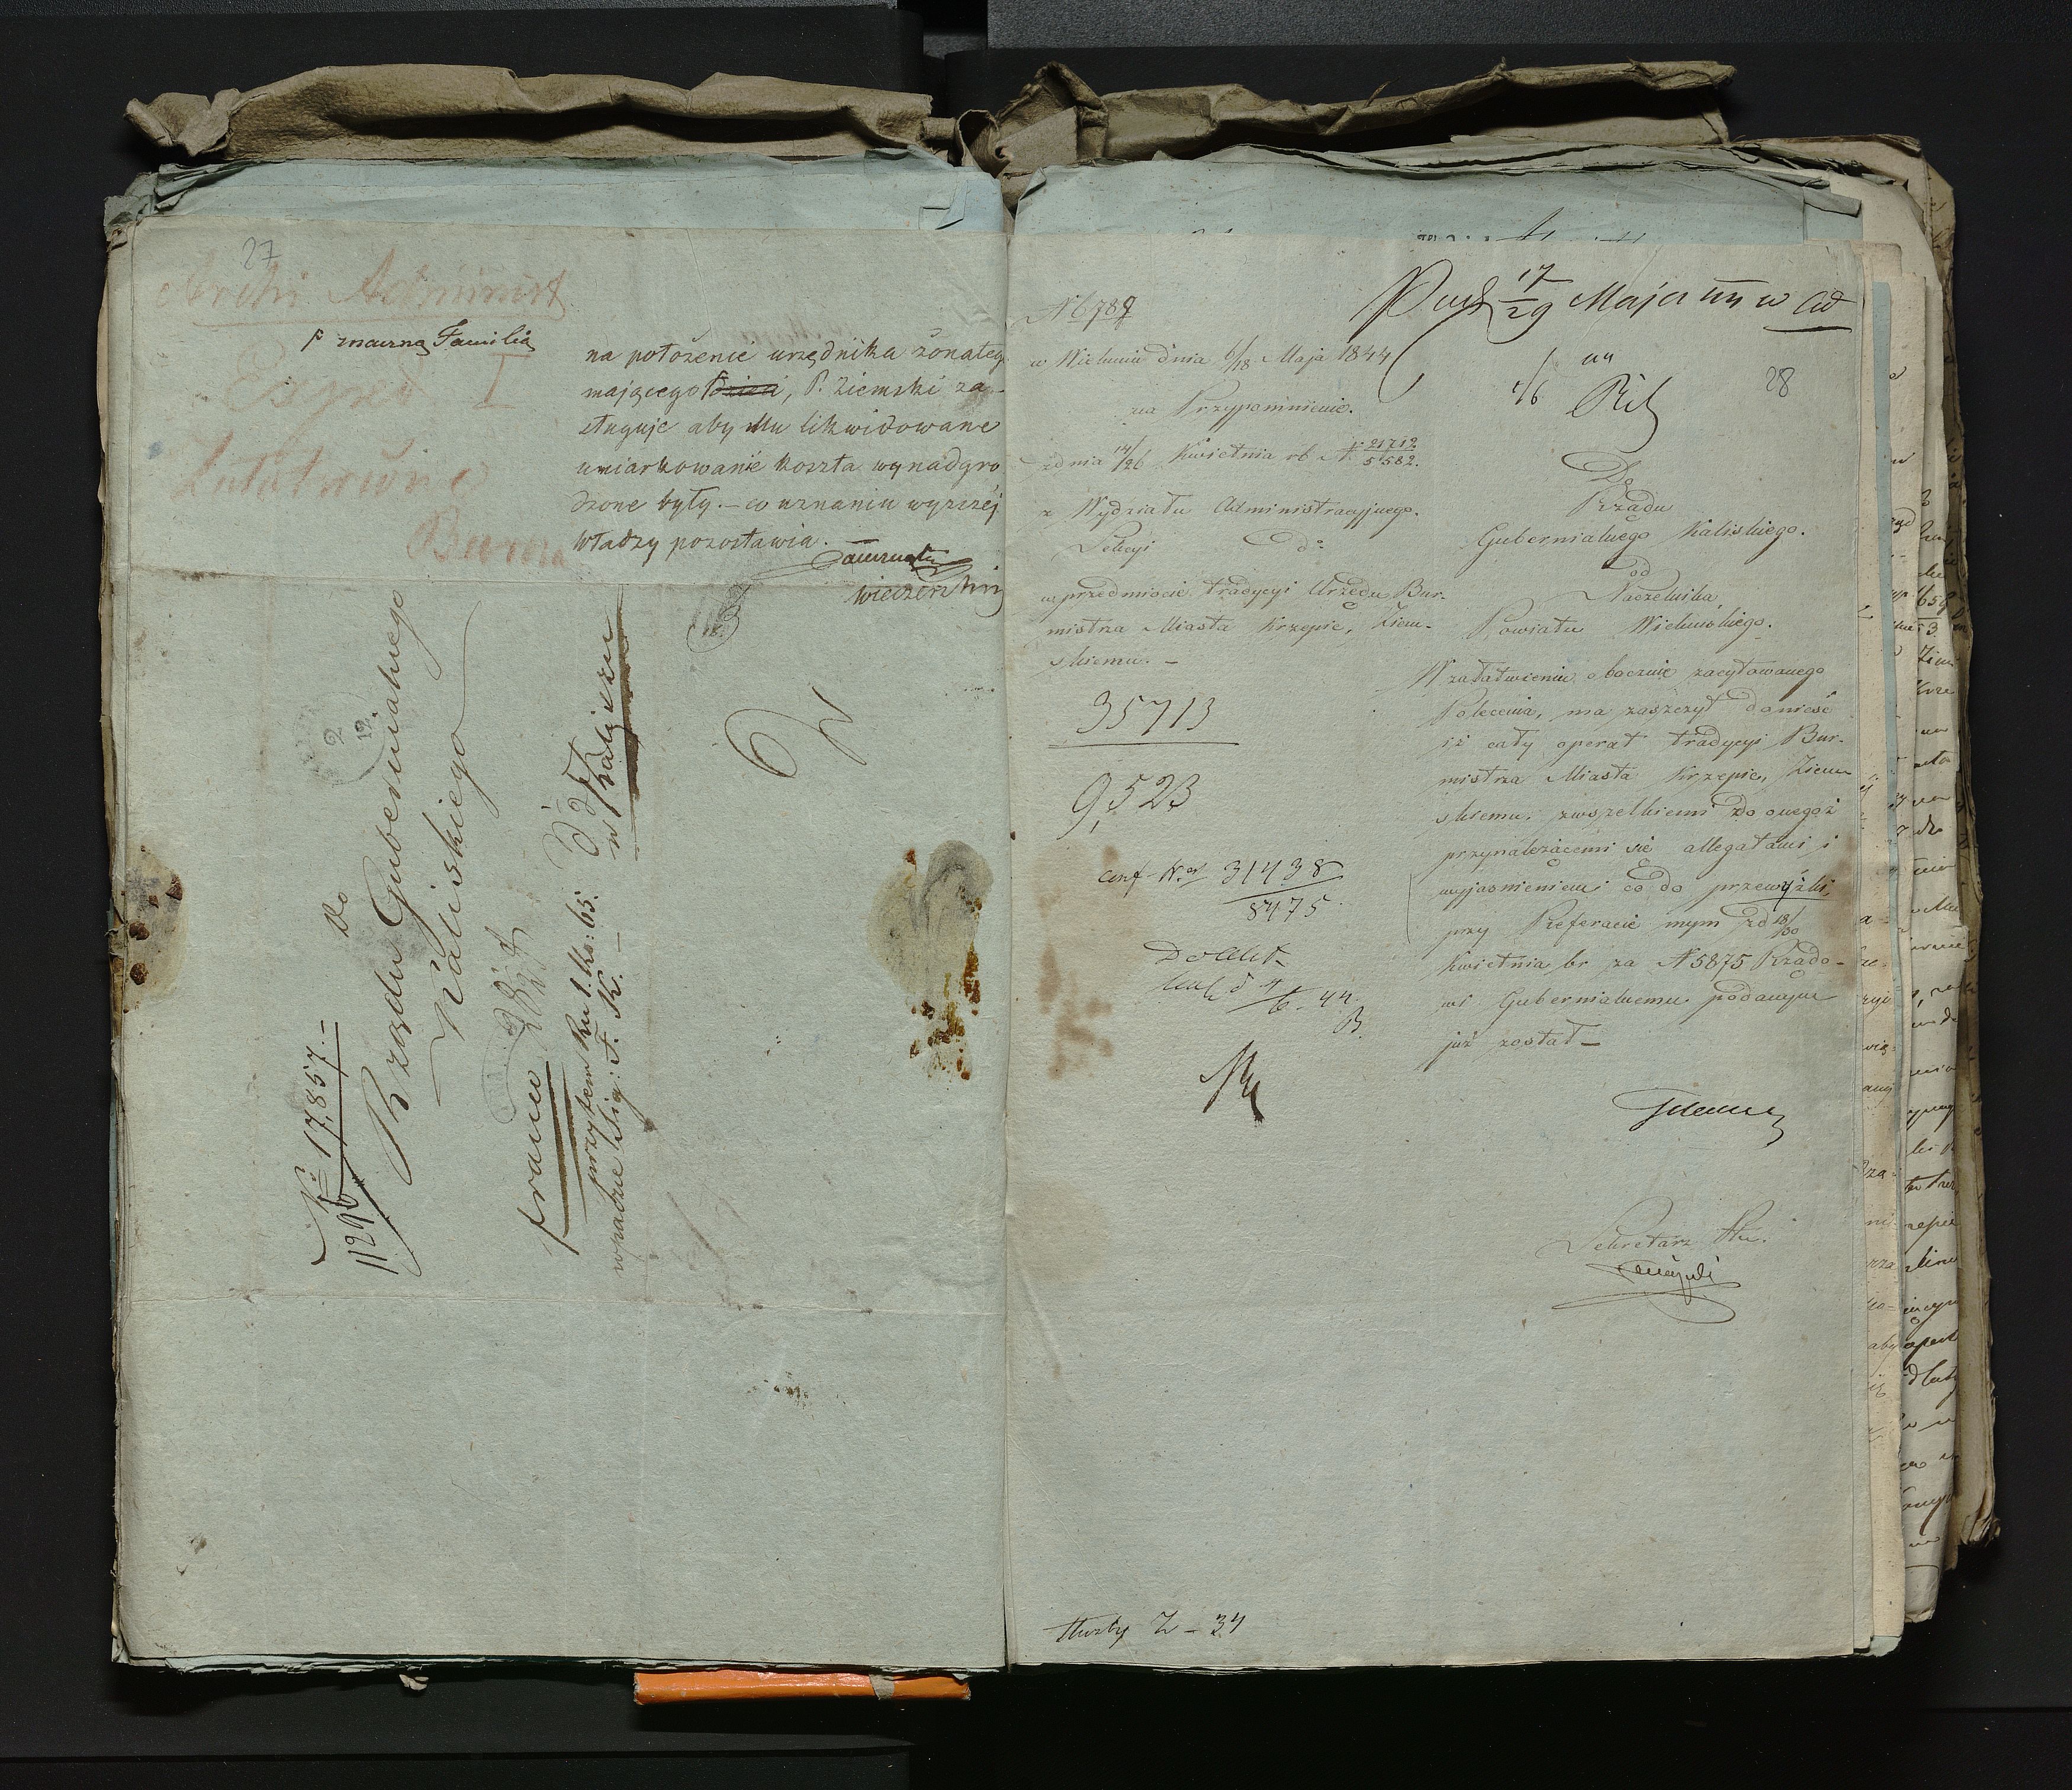 27
Archi Administ
Exped I
Burm
F znaczną Familią
na położenie urzędnika żonateg
mającego dzieci, P. Ziemski za-
sługuje aby Mu likwidowane
umiarkowanie koszta wynadgro
dzone były. — co uznaniu wyższéj
Władzy pozostawia.
Wieczorski
No 17,857.—
11296
Do
Rządu Gubernialnego
Kaliskiego
w Kaliszu
franco
przytem Ru 1. Ko: 65.
w pozdze Lig: F. K. —
28
N 6789
w Wieluniu dnia 6/18 Maja 1844
na Przypomnienie.
z dnia 14/26 Kwietnia rb N 21712/5582.
z Wydziału Administracyjnego.
Sekcyi do
w przedmiocie tradycyi Urzędu Bur-
mistrza Miasta Krzepic, Ziem-
skiemu. —
35713
9,523
Conf. Nr 31438
8475
17/29 Maja w Ad
Do
Rządu
Gubernialnego Kaliskiego.
od
Naczelnika
Powiatu Wieluńskiego.
W załatwieniu obocznie zacytowanego
Polecenia, ma zaszczyt donieść
iż cały operat tradycyi Bur-
mistrza Miasta Krzepic, Ziem
skiemu, zwszelkiemi do onegoż
przynależącemi się allegatami i
wyjaśnieniem co do przewyżki,
przy Referacie mym zd 18/30
Kwietnia br za N 5875 Rządo-
wi Gubernialnemu podanym
już został —
Sekretarz Ptu.
34